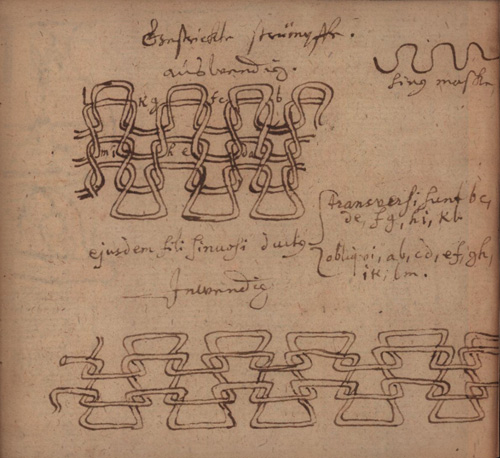 Gestrickte strümpffe.
auswendig.
sing maske
l k g f c b
m i h e d a
ejusdem fili sinuosi ductus
transversi sunt bc,
de, fg, hi, kl
obliqui, ab, cd, ef, gh,
ik, lm.
Inwendig